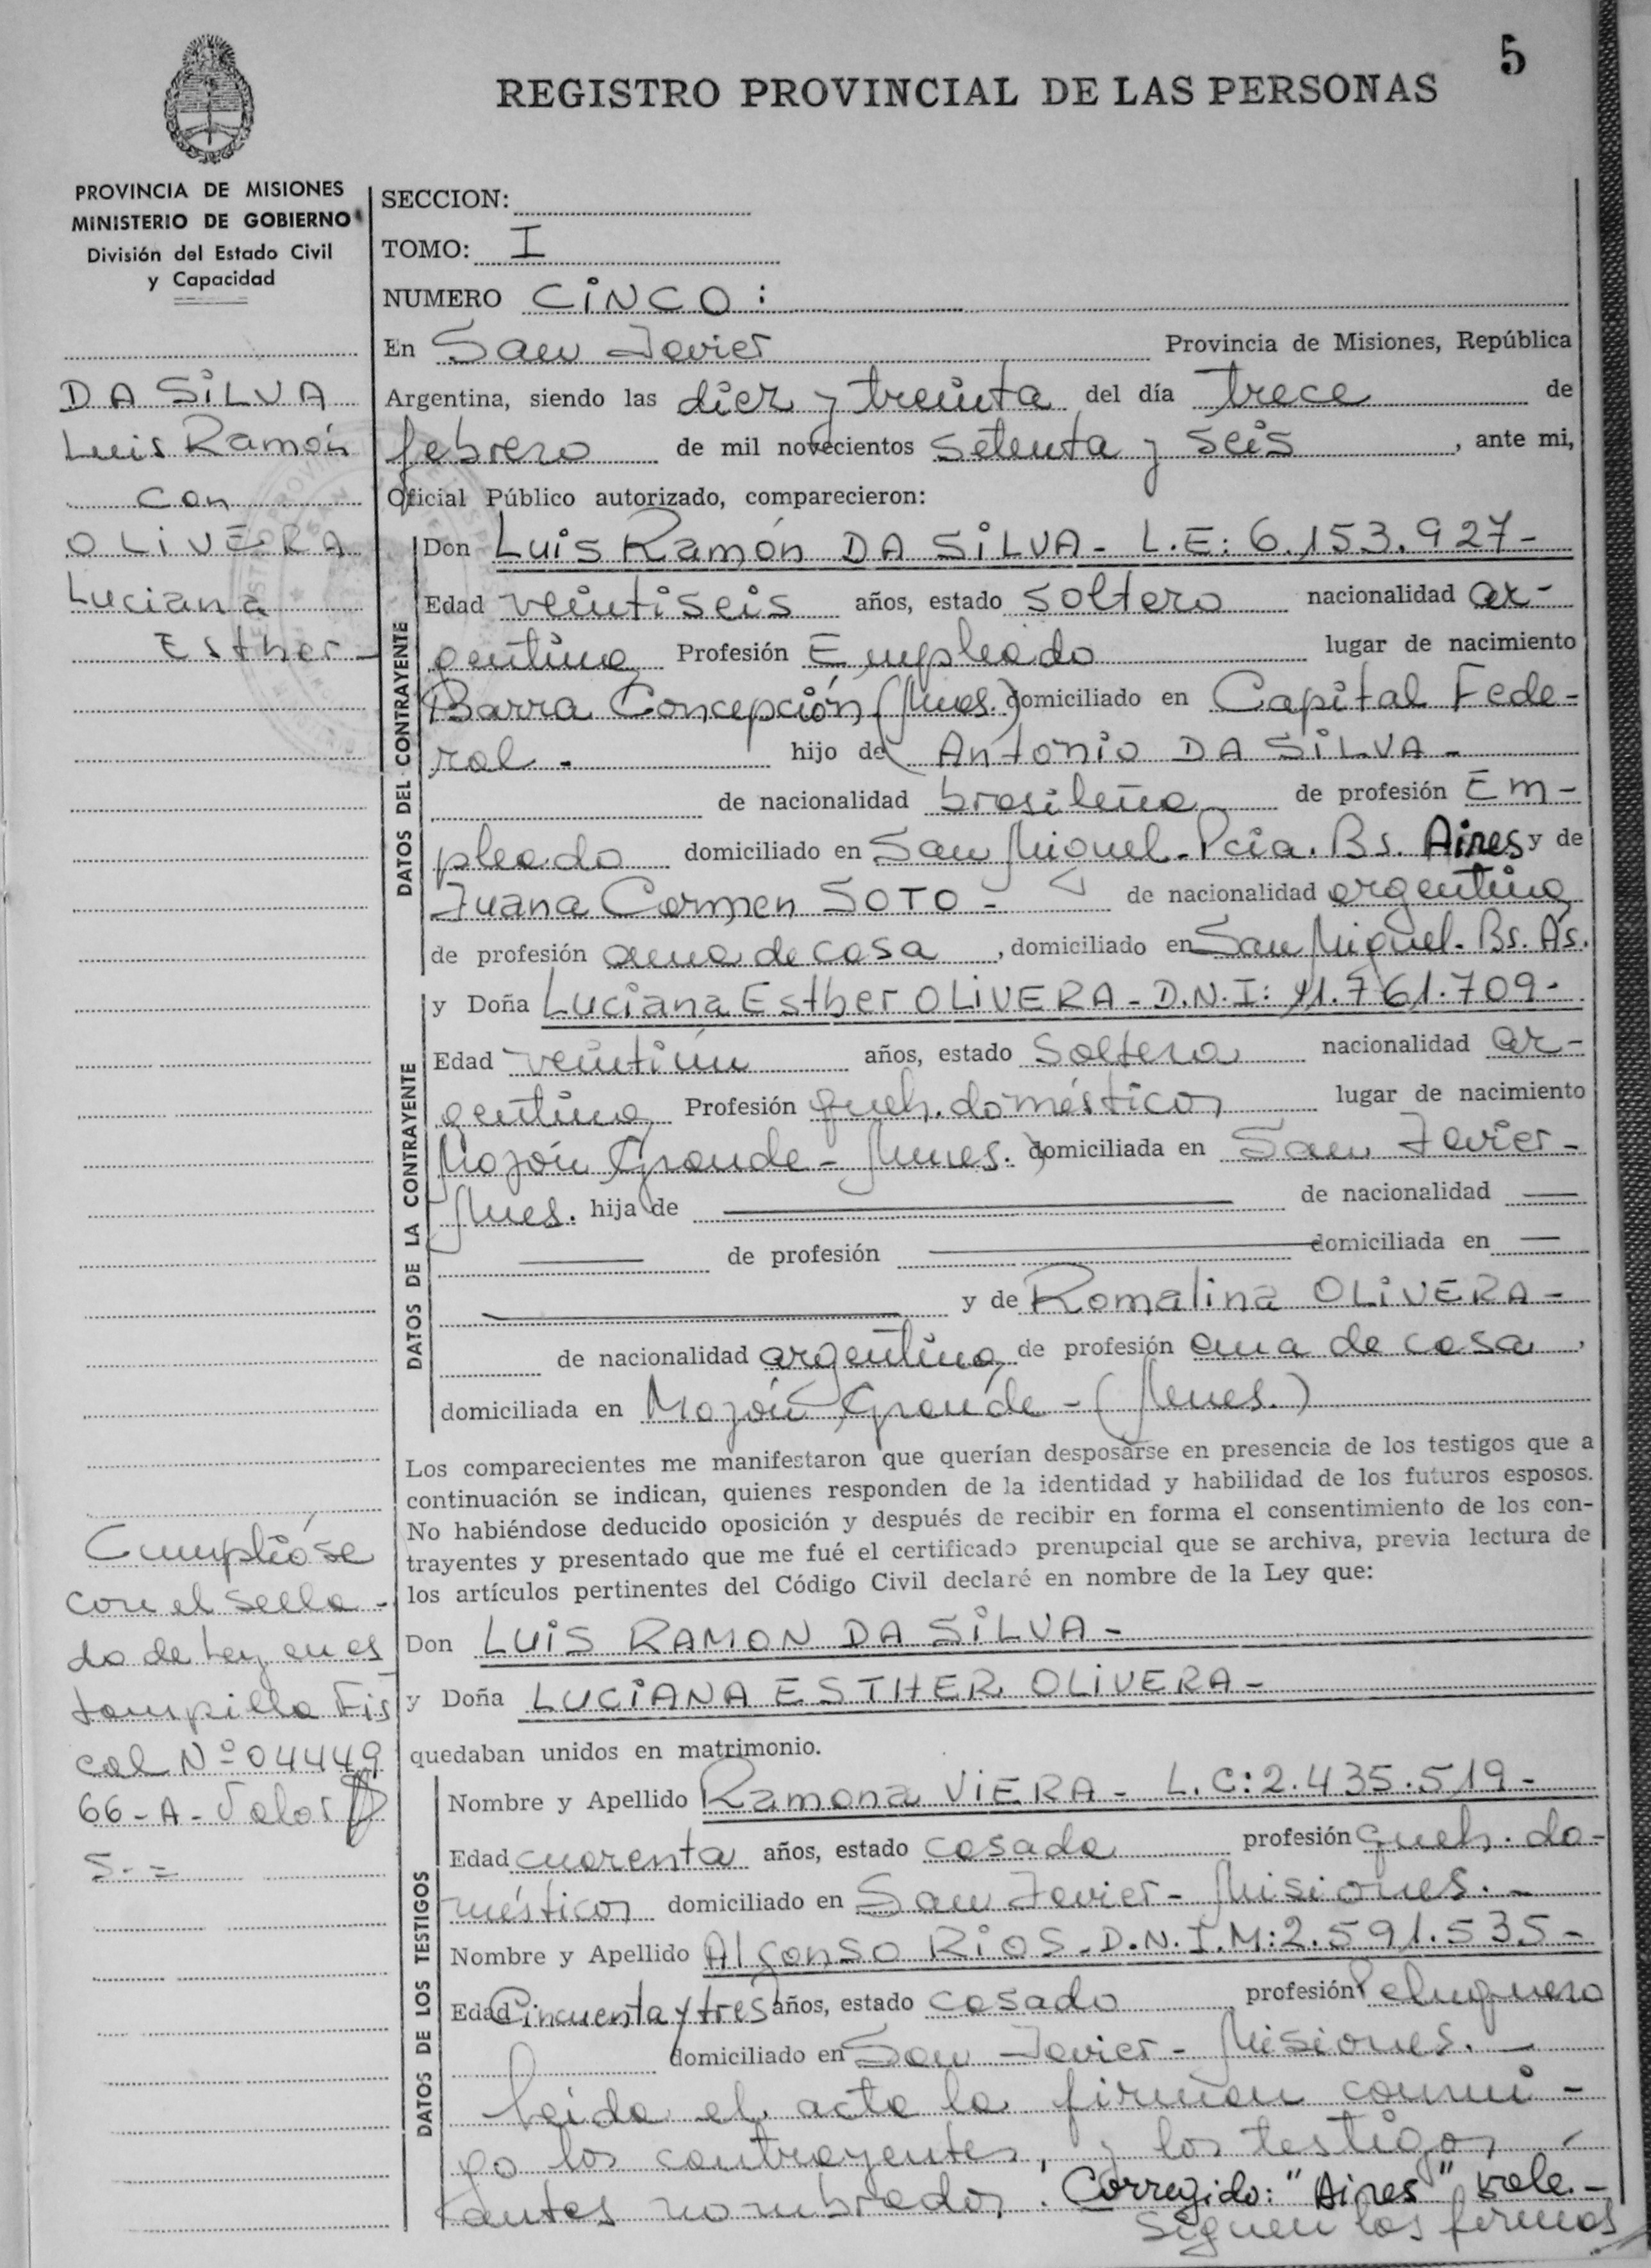 5
REGISTRO PROVINCIAL DE LAS PERSONAS
PROVINCIA DE MISIONES
MINISTERIO DE GOBIERNO
División del Estado Civil
y Capacidad
DA SILVA
Luis Ramón
con
OLIVERA
Luciana
Esther-
Cumplióse
con el sella-
do de Ley en es
tampilla Fis
cal Nº 04449
66-A-Valor $
5.=
SECCION:
TOMO: I
NUMERO CINCO:
En San Javier Provincia de Misiones, República
Argentina, siendo las diez y treinta del día trece de
febrero de mil novecientos setenta y seis, ante mi,
Oficial Público autorizado, comparecieron:
DATOS DEL CONTRAYENTE
Don Luis Ramón DA SILVA- L.E: 6.153.927-
Edad veintiseis años, estado soltero nacionalidad ar-
gentina Profesión Empleado lugar de nacimiento
Barra Concepción (Mnes.) domiciliado en Capital Fede-
ral- hijo de Antonio DA SILVA-
de nacionalidad brasileña de profesión Em-
pleado domiciliado en San Miguel-Pcia. Bs. Aires y de
Juana Carmen SOTO- de nacionalidad argentina
de profesión ama de casa, domiciliado en San Miguel-Bs. As.
DATOS DE LA CONTRAYENTE
y Doña Luciana Esther OLIVERA-D.N.I: 11.761.709-
Edad veintiún años, estado soltera nacionalidad ar-
gentina Profesión queh. domésticos lugar de nacimiento
Mojón Grande-Mnes. domiciliada en San Javier-
Mnes. hija de — de nacionalidad —
— de profesión — domiciliada en —
— y de Romalina OLIVERA-
de nacionalidad argentina de profesión ama de casa,
domiciliada en Mojón Grande-(Mnes.)
Los comparecientes me manifestaron que querían desposarse en presencia de los testigos que a
continuación se indican, quienes responden de la identidad y habilidad de los futuros esposos.
No habiéndose deducido oposición y después de recibir en forma el consentimiento de los con-
trayentes y presentado que me fué el certificado prenupcial que se archiva, previa lectura de
los artículos pertinentes del Código Civil declaré en nombre de la Ley que:
Don LUIS RAMON DA SILVA-
y Doña LUCIANA ESTHER OLIVERA-
quedaban unidos en matrimonio.
DATOS DE LOS TESTIGOS
Nombre y Apellido Ramona VIERA- L.C:2.435.519-
Edad cuarenta años, estado casada profesión queh. do-
mésticos domiciliado en San Javier-Misiones.-
Nombre y Apellido Alfonso RIOS-D.N.I.M:2.591.535-
Edad Cincuenta y tres años, estado casado profesión Peluquero
domiciliado en San Javier-Misiones.-
Leida el acta la firman conmi-
go los contrayentes, y los testigos
antes nombrados. Corregido: "Aires" vale.-
Siguen las firmas